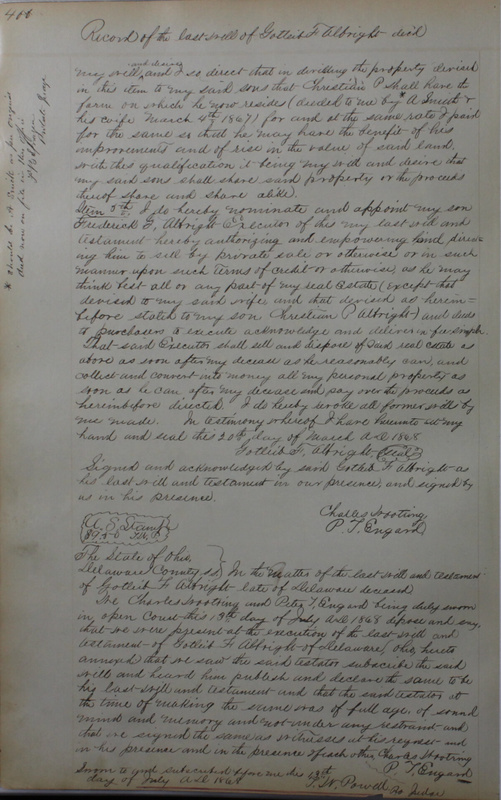 400
Record of the last will of Gotleib F Albright decd
and desire
my will, and I so direct that in dividing the property devised
in this item to my said sons that Christian P shall have the
farm on which he now resides (deeded to me by A Smith &
his wife March 4th 1867) for and at the same rate I paid
for the same so that he may have the benefit of his
improvements and of rise in the value of said land
with this qualification it being my will and desire that
my said sons shall share said property or the proceeds
thereof share and share alike.
Item 5th, I do hereby nominate and appoint my son
Frederick F, Albright Executor of this my last will and
testament hereby authorizing and empowering and direct-
ing him to sell by private sale or otherwise or in such
manner upon such terms of credit or otherwise, as he may
think best all or any part of my real Estate (except that
devised to my said wife, and that devised as herein=
before stated to my son Christian P Albright) and deeds
to purchasers to execute acknowledge and deliver in fee simple
That said Executor shall sell and dispose of said real estate as
above as soon after my decease as he reasonably can, and
collect and convert into money all my personal property as
soon as he can after my decease and pay over the proceeds as
hereinbefore directed. I do hereby revoke all former wills by
me made. In testimony whereof I have hereunto set my
hand and seal this 20th day of March A.D 1868
Gotleib F. Albright (Seal)
Signed and acknowledged by said Gotleib F Albright as
his last will and testament in our presence, and signed by
us in his presence.
Charles Wootring
P. T. Engard
U. S. Stamp
The State of Ohio,
Delaware County, ss } In the Matter of the last will and testament
of Gotleib F Albright late of Delaware deceased
We Charles Wootring and Peter T Engard being duly sworn
in open Court this 13th day of July A.D. 1868 depose and say,
that we were present at the execution of the last will and
testament of Gotleib F Albright of Delaware, Ohio, hereto
annexed that we saw the said testator subscribe the said
will and heard him publish and declare the same to be
his last will and testament and that the said testator at
the time of making the same was of full age, of sound
mind and memory and not under any restraint and
that we signed the same as witnesses at his request and
in his presence and in the presence of each other Charles Wootring
P. T. Engard
Sworn to and subscribed before me this 13th
day of July A.D 1868 T. W. Powell Pro Judge
* should be A. Smith as per original
Will now on file in this office
Probate Judge